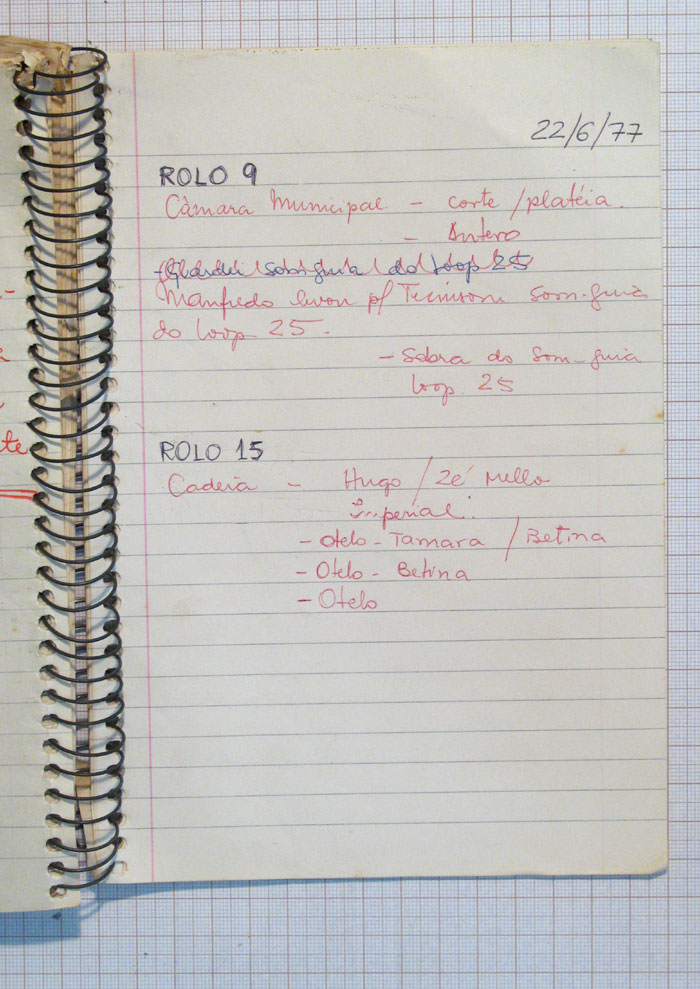 22/6/77
ROLO 9
Câmara Municipal - corte / platéia.
- Antero
Guardei sobr guia do loop 25
Manfredo levou p/ Tecnisom Som-guia
do loop 25.
- Sobra do Som-guia
loop 25
ROLO 15
Cadeia - Hugo / Zé Mello
Imperial.
- Otelo - Tamara / Betina
- Otelo - Betina
- Otelo
te